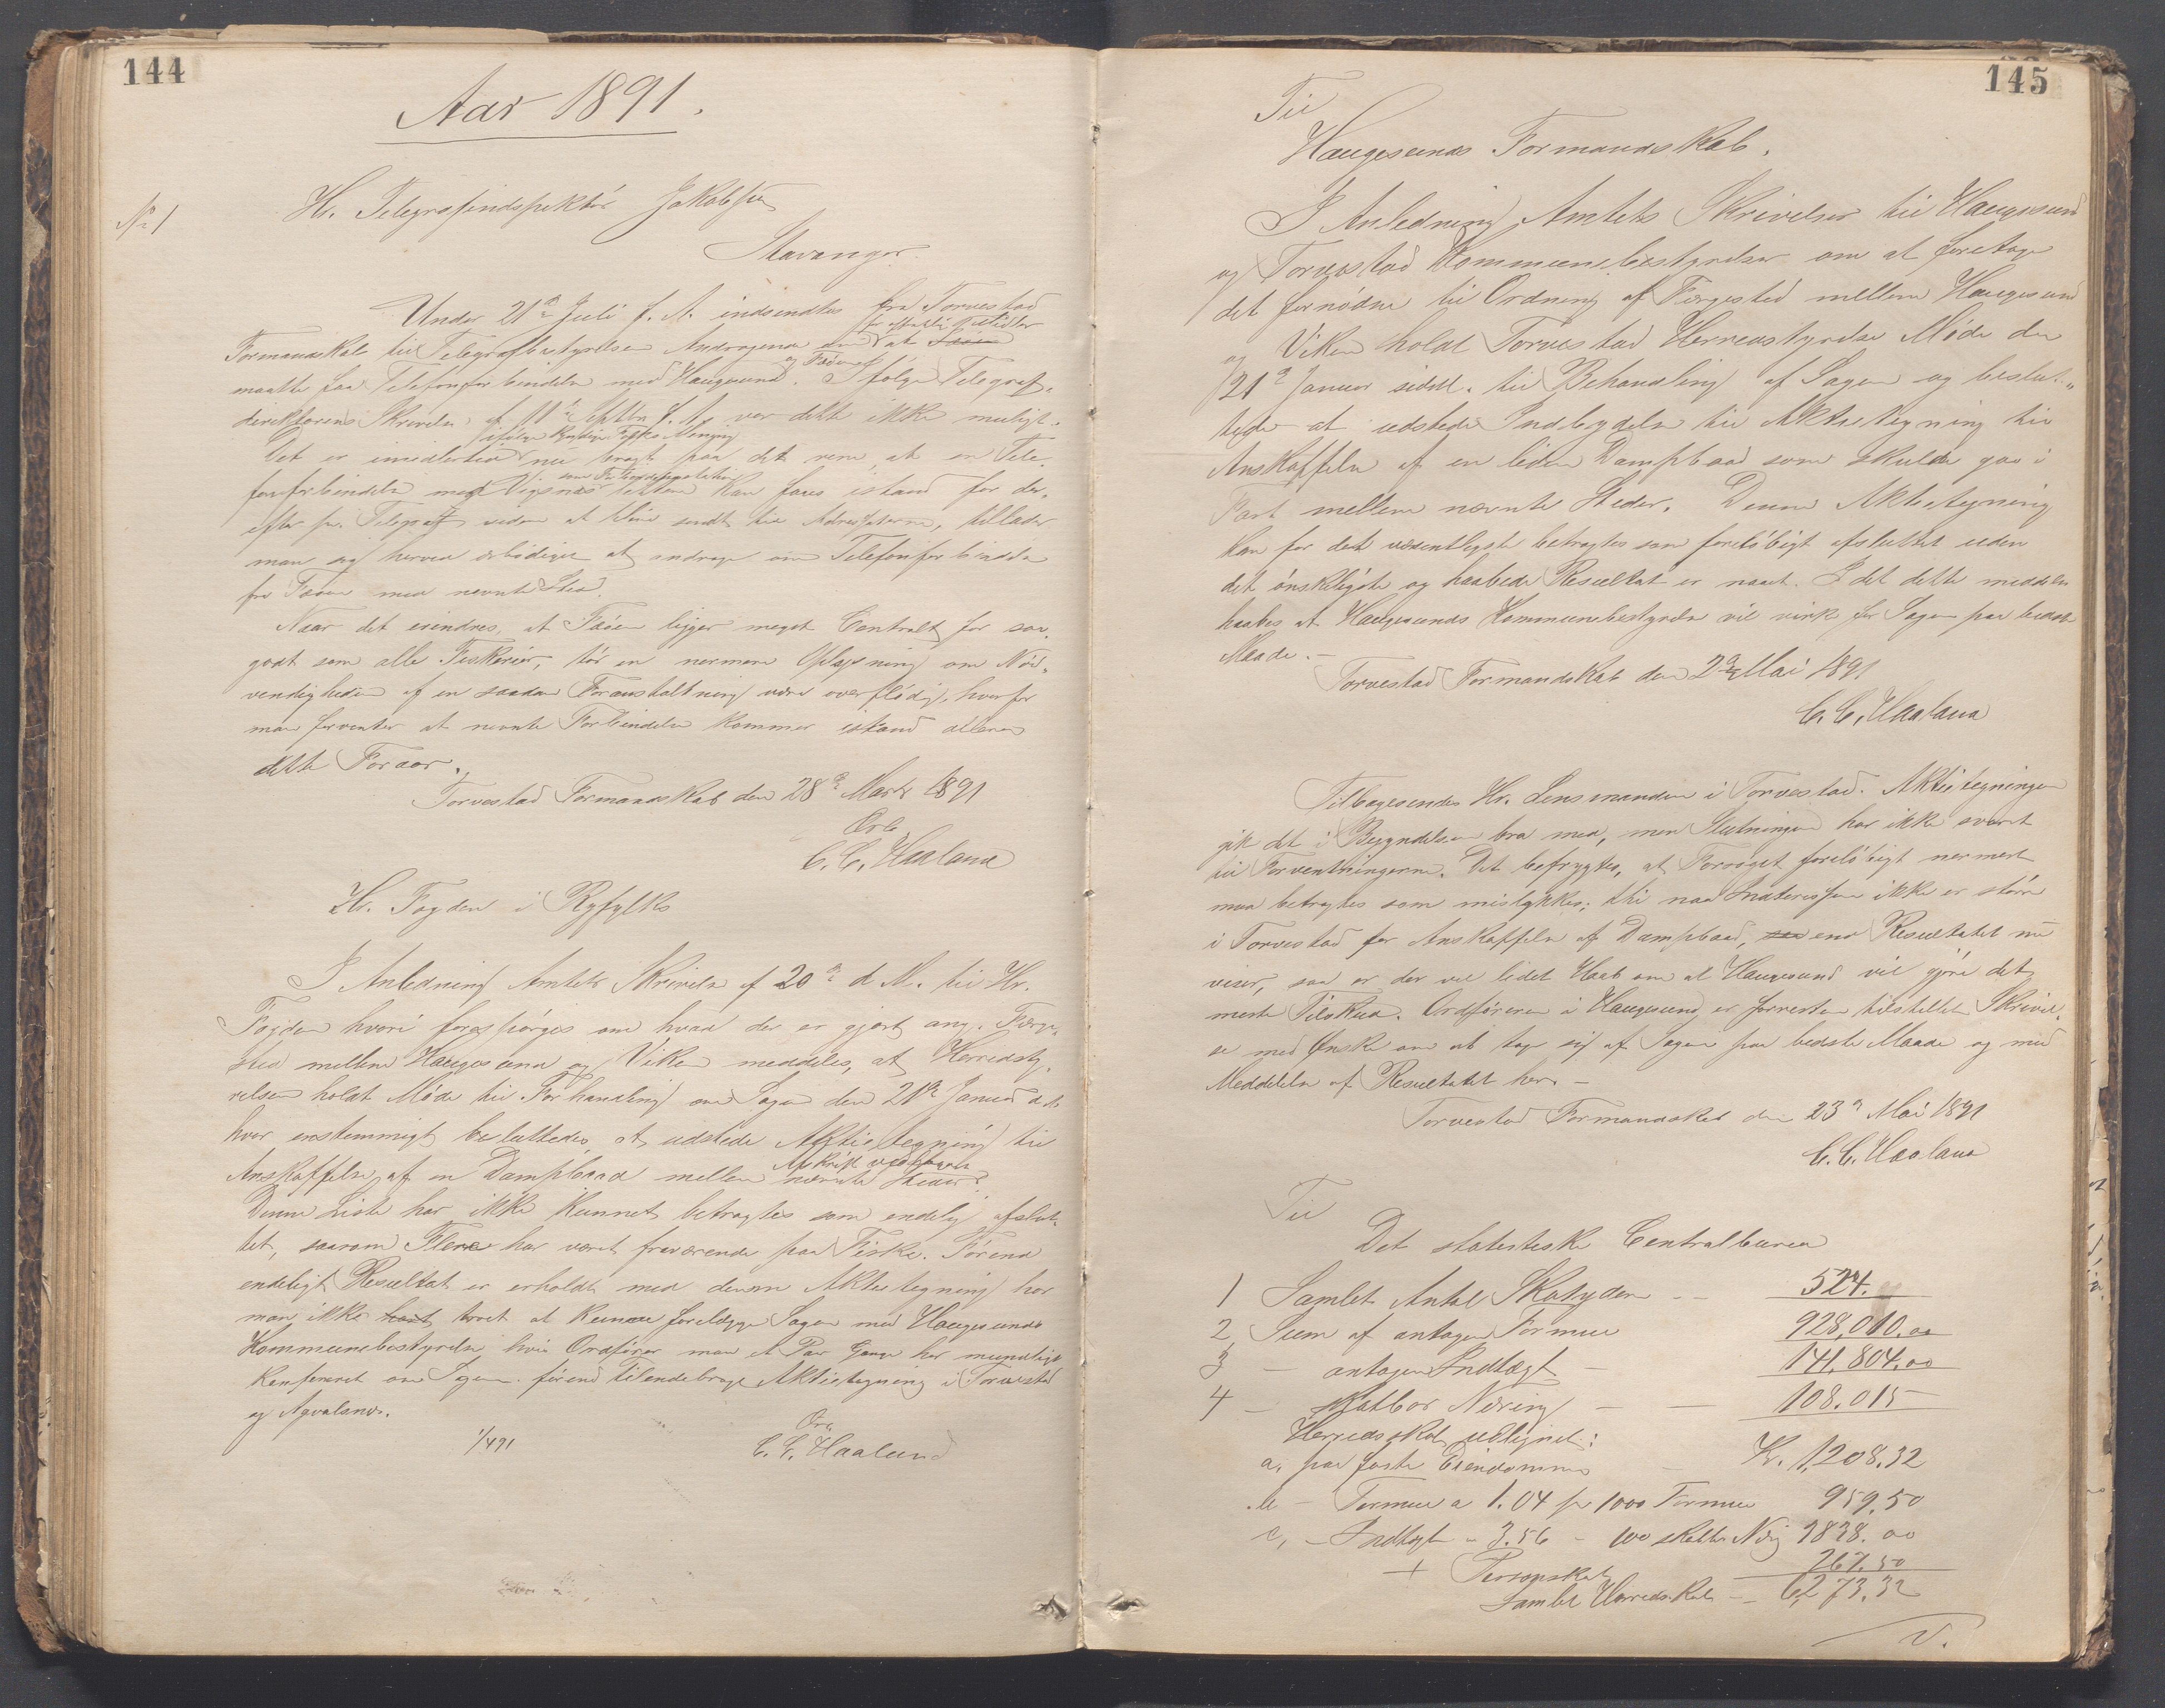 144
Aar 1891.
No 1
Hr. Telegrafindspektör Jakobsen
Stavanger.
Under 21de Juli f. A. indsendtes fra Torvestad
Formandskab til Telegrafbestyrelsen Andragende om at
maatte faa Telefonforbindelse med Haugesund. Ifölge Telegraf-
direktörens Skrivelse af 11te Septbr. f. A. var dette ikke muligt.
Det er imidlertid nu bragt paa det rene, at en Tele-
fonforbindelse med Vigsnes kan faaes istand for der-
efter pr. Telegraf siden at blive sendt til Adressaterne, tillader
man sig herved ærbödigst at andrage om Telefonforbindelse
fra Fæöen med nævnte Sted.
Naar det erindres, at Fæöen ligger meget Centralt for saa-
godt som alle Fiskerier, tör en nærmere Oplysning om Nöd-
vendigheden af en saadan Foranstaltning være overflödig, hvorfor
man forventer at nævnte Forbindelse kommer istand allerede
dette Foraar.
Torvestad Formandskab den 28de Marts 1891
Ærb.
C. C. Haaland
Hr. Fogden i Ryfylke
I Anledning Amtets Skrivelse af 20de d. M. til Hr.
Fogden hvori forespörges om hvad der er gjort ang. Færge-
sted mellem Haugesund og Viken meddeles, at Herredsty-
relsen holdt Möde til Forhandling om Sagen den 21de Januar d. A.
hvor enstemmigt besluttedes at udstede Aktietegning til
Anskaffelse af en Dampbaad mellem nævnte Steder.
Afskrift vedlægges
Denne Liste har ikke kunnet betragtes som endelig afslut-
tet, saasom Flere har været fraværende paa Fiske. Förend
endeligt Resultat er erholdt med denne Aktietegning har
man ikke havt troet at kunne forelægge Sagen med Haugesunds
Kommunebestyrelse, hvis Ordförer man et Par Gange har mundtligt
konfereret om Sagen förend tilendebragt Aktietegning i Torvestad
og Avaldsnes.
1/4 91
Ærb.
C. C. Haaland
145
Til
Haugesunds Formandskab.
I Anledning Amtets Skrivelser til Haugesund
og Torvestad Kommunebestyrelser om at foretage
det fornödne til Ordning af Færgested mellem Haugesund
og Viken holdt Torvestad Herredstyrelse Möde den
21de Januar sidstl. til Behandling af Sagen og beslut-
tede at udstede Indbydelse til Aktietegning til
Anskaffelse af en liden Dampbaad som skulde gaa i
Fart mellem nævnte Steder. Denne Aktietegning
kan for det væsentligste betragtes som forelöbigt afsluttet uden
det önskeligste og haabede Resultat er naaet. I det dette meddeles
haabes at Haugesunds Kommunebestyrelse vil virke for Sagen paa bedste
Maade.
Torvestad Formandskab den 2de Mai 1891
C. C. Haaland
Tilbagesendes Hr. Lensmanden i Torvestad. Aktietegningen
gik det i Begyndelsen bra med, men Slutningen har ikke svaret
til Forventningerne. Det befrygtes, at Forsöget forelöbigt nærmest
maa betragtes som mislykket; thi naar Interessen ikke er större
i Torvestad for Anskaffelse af Dampbaad, end Resultatet nu
viser, saa er der vel lidet Haab om at Haugesund vil gjöre det
meste Tilskud. Ordföreren i Haugesund er forresten tilstillet Skrivel-
se med Önske om at tage sig af Sagen paa bedste Maade og med
Meddelelse af Resultatet her. -
Torvestad Formandskab den 23de Mai 1891
C. C. Haaland
Til
Det statistiske Centralbureau
1 Samlet Antal Skatydere - - 524.
2 Sum af antagen Formue 928,010.00
3 - antagen Indtægt - 141,804.00
4 - skatbar Næring - - 108.015
Herredsskat udlignet:
a, paa faste Eiendomme - Kr. 1,208.32
b - Formue a 1.04 pr 1000 Formue 959,50
c, - Indtægt - 3.56 - 100 skatb. Næring 3838.00
+ Personskat 267.50
Samlet Herredsskat - - 6,273,32
V.